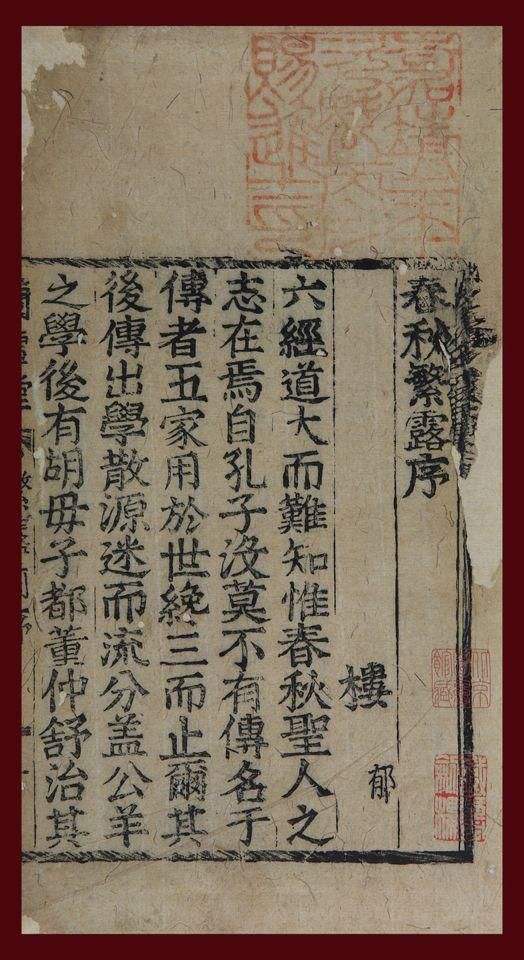 春秋繁露序
樓郁
六經道大而難知惟春秋聖人之
志在焉自孔子沒莫不有傳名于
傳者五家用於世纔三而止爾其
後傳出學散源迷而流分盖公羊
之學後有胡毋子都董仲舒治其